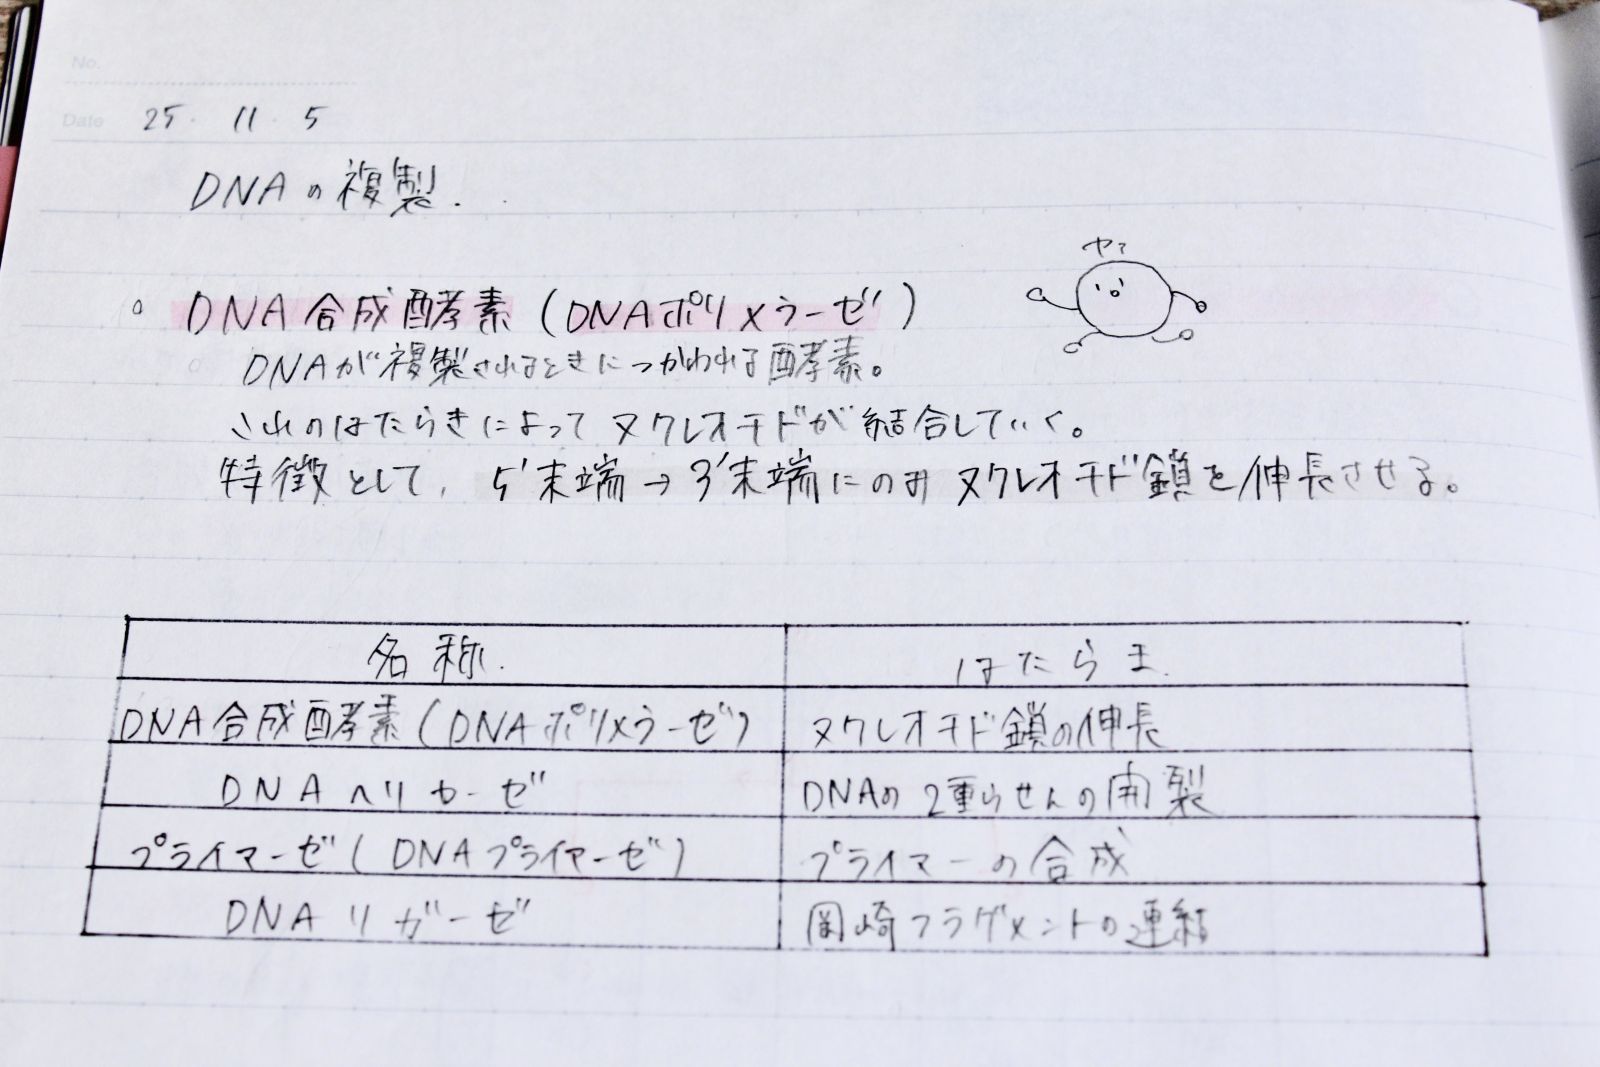 No.
Date 25・11・5
DNAの複製.
○ DNA合成酵素(DNAポリメラーゼ)
ヤァ
DNAが複製されるときにつかわれる酵素。
これのはたらきによってヌクレオチドが結合していく。
特徴として、5'末端→3'末端にのみヌクレオチド鎖を伸長させる。
名称. はたらき.
DNA合成酵素(DNAポリメラーゼ) ヌクレオチド鎖の伸長
DNAヘリカーゼ DNAの2重らせんの開裂
プライマーゼ(DNAプライマーゼ) プライマーの合成
DNAリガーゼ 岡崎フラグメントの連結